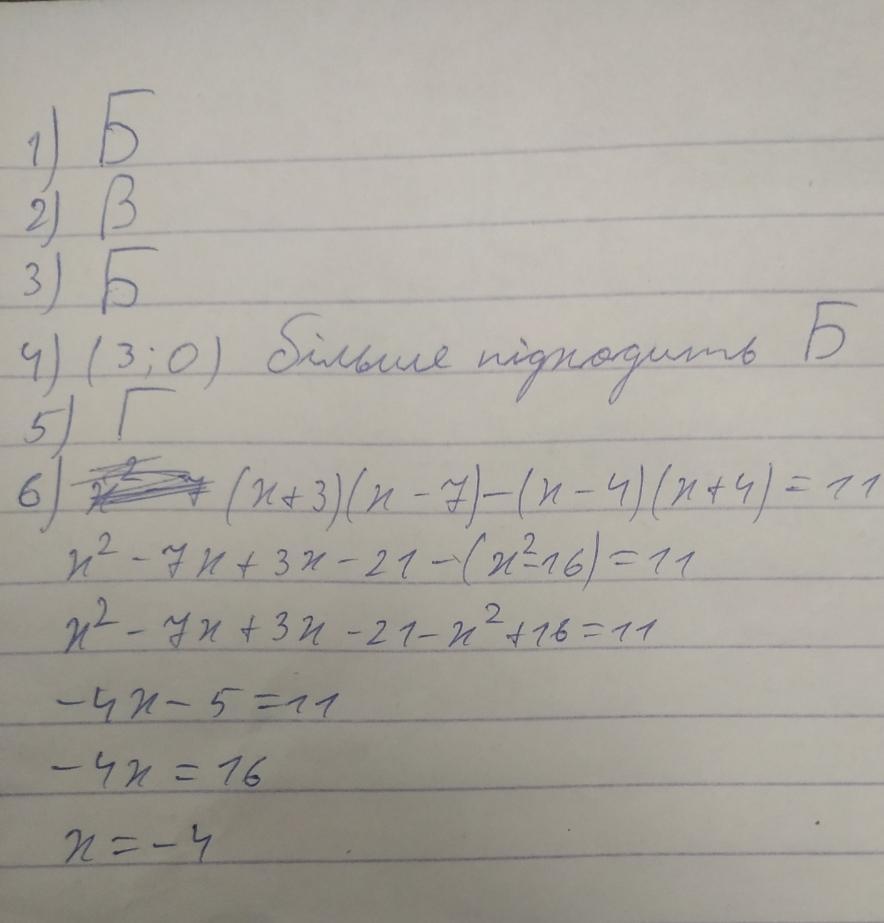 1) Б
2) В
3) Б
4) (3;0) більше підходить Б
5) Г
6) (x+3)(x-7)-(x-4)(x+4)=11
x²-7x+3x-21-(x²-16)=11
x²-7x+3x-21-x²+16=11
-4x-5=11
-4x=16
x=-4